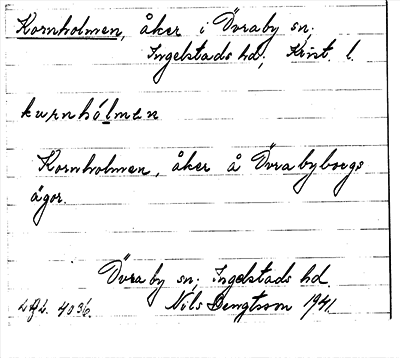 Kornholmen, åker i Övraby sn;
Ingelstads hd; Krist. l.
kurnhólmen
Kornholmen, åker å Övrabyborgs
ägor.
Övraby sn; Ingelstads hd.
Nils Bengtsson 1941.